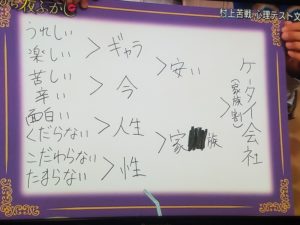 夜ふかし
村上苦戦 心理テスト文
うれしい
楽しい
>ギャラ
苦しい
辛い
>今
面白い
くだらない
>人生
こだわらない
たまらない
>性
>安い
>家族
>ケータイ会社
(家族割)